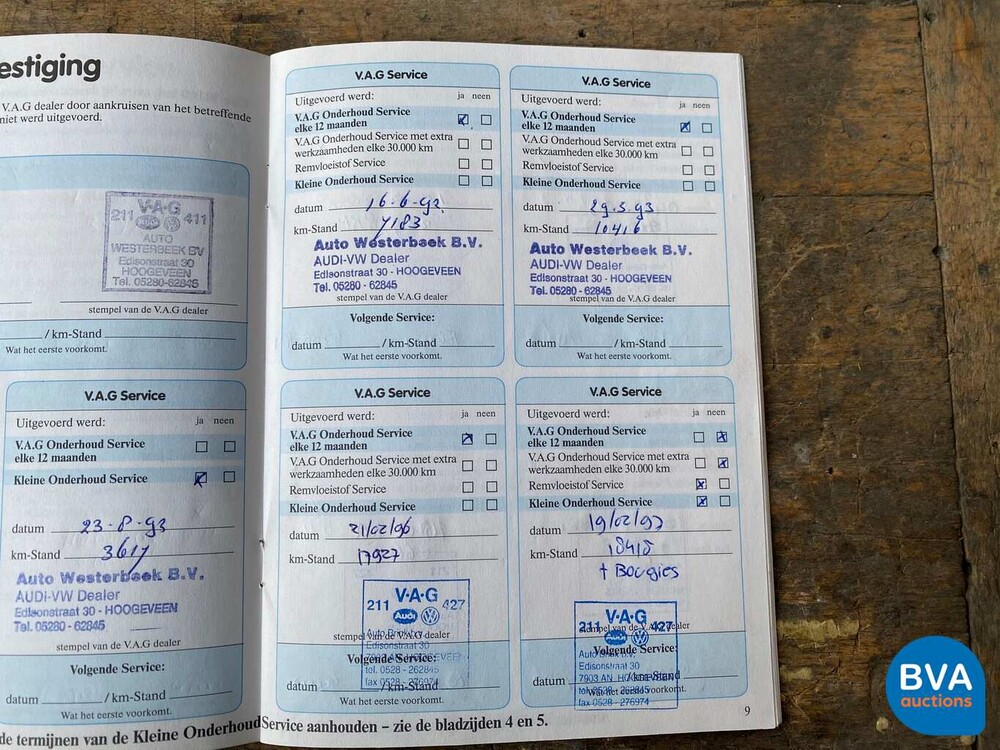 estiging
V.A.G dealer door aankruisen van het betreffende
niet werd uitgevoerd.
211 V·A·G 411
AUTO
WESTERBEEK BV
Edisonstraat 30
HOOGEVEEN
Tel. 05280-62845
stempel van de V.A.G dealer
/ km-Stand
Wat het eerste voorkomt.
V.A.G Service
Uitgevoerd werd: ja neen
V.A.G Onderhoud Service
elke 12 maanden
Kleine Onderhoud Service
datum 23-8-93
km-Stand
Auto Westerbeek B.V.
AUDI-VW Dealer
Edisonstraat 30 - HOOGEVEEN
Tel. 05280 - 62845
stempel van de V.A.G dealer
Volgende Service:
datum / km-Stand
Wat het eerste voorkomt.
V.A.G Service
Uitgevoerd werd: ja neen
V.A.G Onderhoud Service
elke 12 maanden
V.A.G Onderhoud Service met extra
werkzaamheden elke 30.000 km
Remvloeistof Service
Kleine Onderhoud Service
datum
km-Stand 7183
Auto Westerbeek B.V.
AUDI-VW Dealer
Edisonstraat 30 - HOOGEVEEN
Tel. 05280 - 62845
stempel van de V.A.G dealer
Volgende Service:
datum / km-Stand
Wat het eerste voorkomt.
V.A.G Service
Uitgevoerd werd: ja neen
V.A.G Onderhoud Service
elke 12 maanden
V.A.G Onderhoud Service met extra
werkzaamheden elke 30.000 km
Remvloeistof Service
Kleine Onderhoud Service
datum
km-Stand 10416
Auto Westerbeek B.V.
AUDI-VW Dealer
Edisonstraat 30 - HOOGEVEEN
Tel. 05280 - 62845
stempel van de V.A.G dealer
Volgende Service:
datum / km-Stand
Wat het eerste voorkomt.
V.A.G Service
Uitgevoerd werd: ja neen
V.A.G Onderhoud Service
elke 12 maanden
V.A.G Onderhoud Service met extra
werkzaamheden elke 30.000 km
Remvloeistof Service
Kleine Onderhoud Service
datum 21/02/96
km-Stand 17927
211 V·A·G 427
Audi
stempel van de V.A.G dealer
Edisonstraat 30
Volgende Service:
tel. 0528 - 262845
fax 0528 - 276974
datum / km-Stand
Wat het eerste voorkomt.
V.A.G Service
Uitgevoerd werd: ja neen
V.A.G Onderhoud Service
elke 12 maanden
V.A.G Onderhoud Service met extra
werkzaamheden elke 30.000 km
Remvloeistof Service
Kleine Onderhoud Service
datum 19/02/97
km-Stand 18418
+ Bougies
V·A·G
211 427
Audi
stempel van de V.A.G dealer
Volgende Service:
Edisonstraat 30
datum / km-Stand
Wat het eerste voorkomt.
fax 0528 - 276974
9
de termijnen van de Kleine Onderhoud Service aanhouden – zie de bladzijden 4 en 5.
BVA
auctions